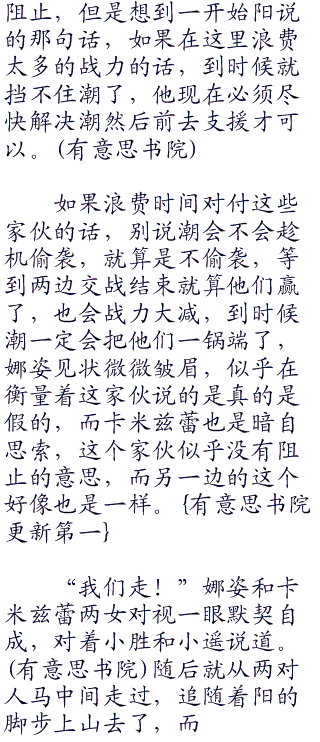 阻止，但是想到一开始阳说
的那句话，如果在这里浪费
太多的战力的话，到时候就
挡不住潮了，他现在必须尽
快解决潮然后前去支援才可
以。(有意思书院)
如果浪费时间对付这些
家伙的话，别说潮会不会趁
机偷袭，就算是不偷袭，等
到两边交战结束就算他们赢
了，也会战力大减，到时候
潮一定会把他们一锅端了，
娜姿见状微微皱眉，似乎在
衡量着这家伙说的是真的是
假的，而卡米兹蕾也是暗自
思索，这个家伙似乎没有阻
止的意思，而另一边的这个
好像也是一样。{有意思书院
更新第一}
“我们走！”娜姿和卡
米兹蕾两女对视一眼默契自
成，对着小胜和小遥说道。
(有意思书院)随后就从两对
人马中间走过，追随着阳的
脚步上山去了，而